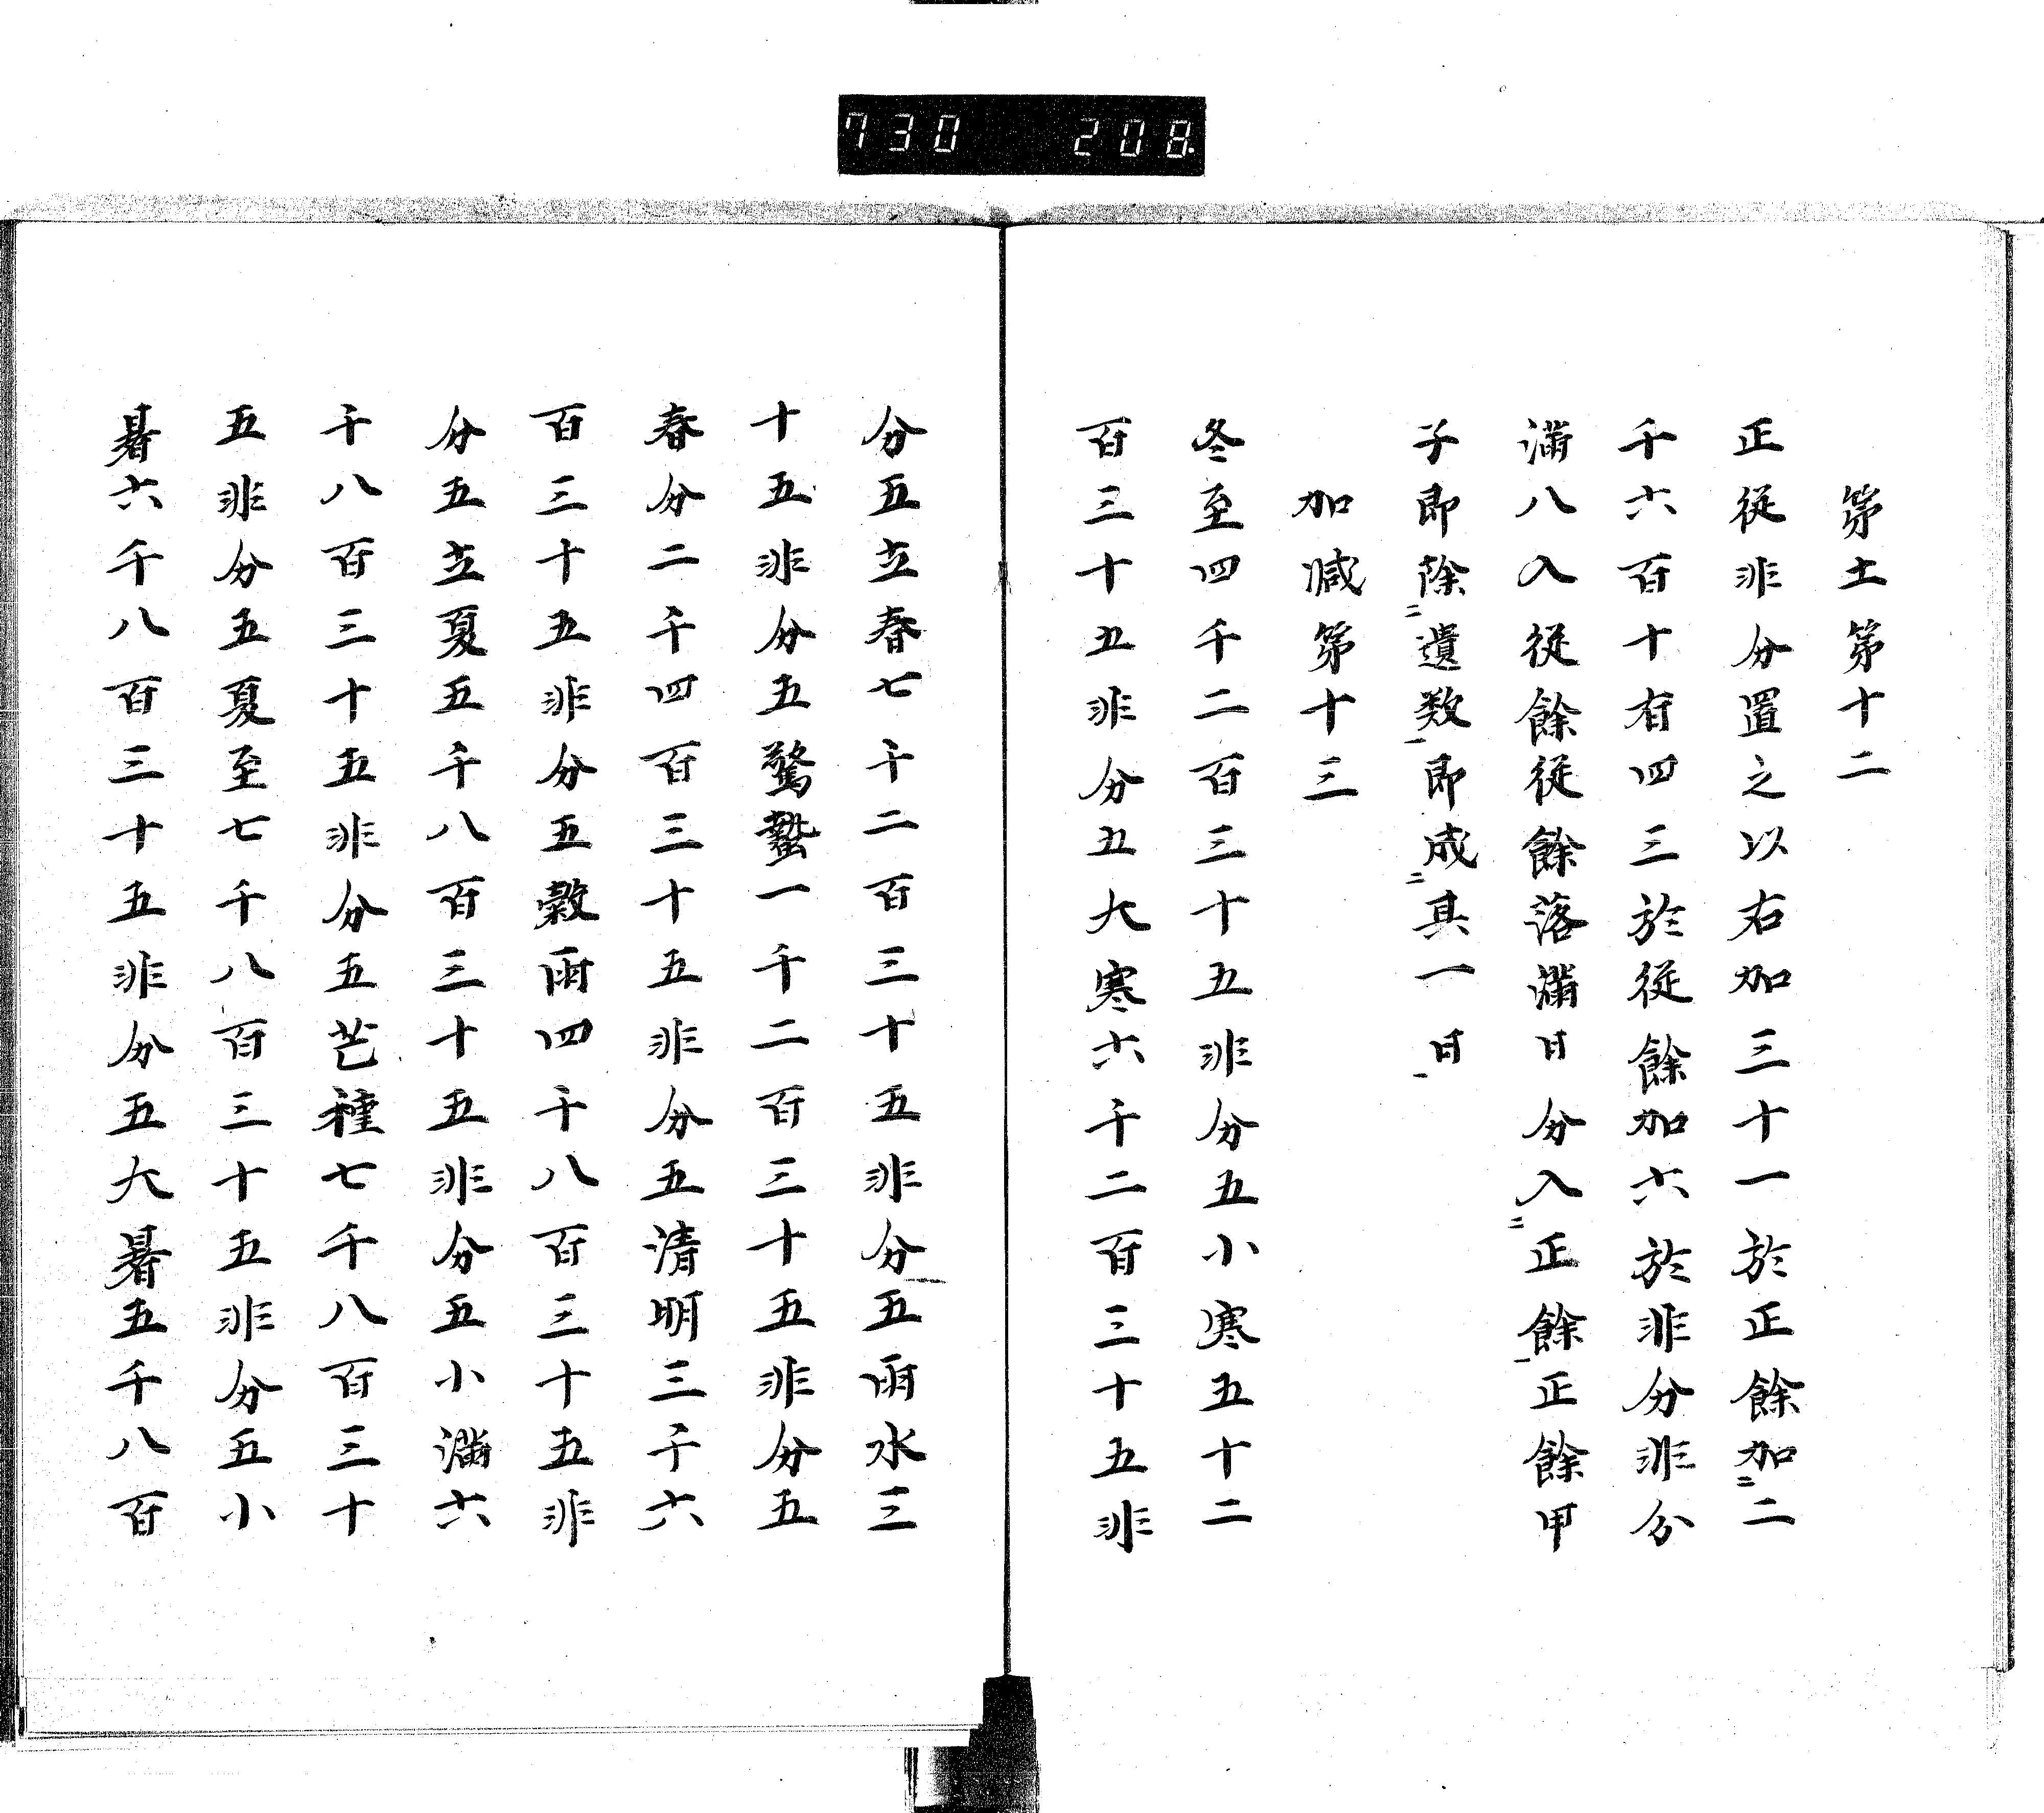 730 208
第土第十二
正従非分置之以右加三十一於正餘加二二
千六百十有四三於従餘加六於非分非分
満八入従餘従餘落満日分入二正餘一正餘甲
子即除二遺数一即成二其一日一
加減第十三
冬至四千二百三十五非分五小寒五十二
百三十五非分五大寒六千二百三十五非
分五立春七千二百三十五非分五雨水三
十五非分五驚蟄一千二百三十五非分五
春分二千四百三十五非分五清明三千六
百三十五非分五穀雨四千八百三十五非
分五立夏五千八百三十五非分五小満六
千八百三十五非分五芒種七千八百三十
五非分五夏至七千八百三十五非分五小
暑六千八百三十五非分五大暑五千八百